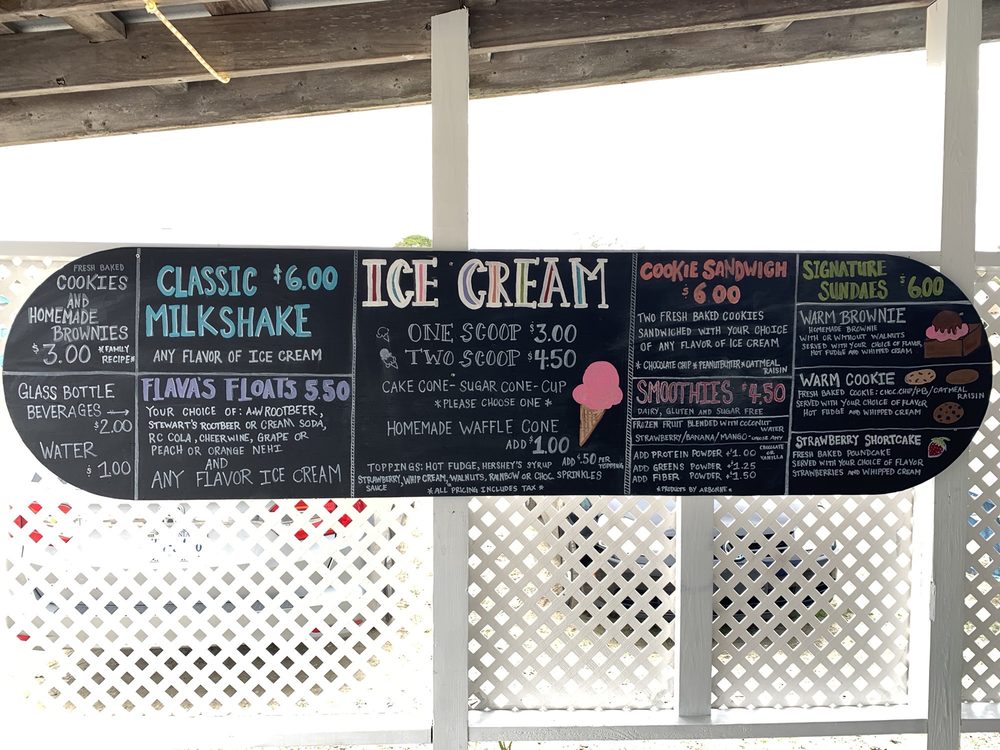 FRESH BAKED
COOKIES
AND
HOMEMADE
BROWNIES
$3.00 *FAMILY
RECIPE*
GLASS BOTTLE
BEVERAGES →
$2.00
WATER
$1.00
CLASSIC $6.00
MILKSHAKE
ANY FLAVOR OF ICE CREAM
FLAVA'S FLOATS 5.50
YOUR CHOICE OF: A&W ROOTBEER,
STEWART'S ROOTBEER OR CREAM SODA,
RC COLA, CHEERWINE, GRAPE OR
PEACH OR ORANGE NEHI
AND
ANY FLAVOR ICE CREAM
ICE CREAM
ONE SCOOP $3.00
TWO SCOOP $4.50
CAKE CONE - SUGAR CONE - CUP
*PLEASE CHOOSE ONE*
HOMEMADE WAFFLE CONE
ADD $1.00
ADD $.50 PER
TOPPING
TOPPINGS: HOT FUDGE, HERSHEY'S SYRUP
STRAWBERRY, WHIP CREAM, WALNUTS, RAINBOW OR CHOC. SPRINKLES
SAUCE
*ALL PRICING INCLUDES TAX*
COOKIE SANDWICH
$6.00
TWO FRESH BAKED COOKIES
SANDWICHED WITH YOUR CHOICE
OF ANY FLAVOR OF ICE CREAM
*CHOCOLATE CHIP *PEANUTBUTTER *OATMEAL
RAISIN
SMOOTHIES $4.50
DAIRY, GLUTEN AND SUGAR FREE
FROZEN FRUIT BLENDED WITH COCONUT
WATER
STRAWBERRY/BANANA/MANGO - CHOOSE ANY
ADD PROTEIN POWDER +$1.00
CHOCOLATE
OR
VANILLA
ADD GREENS POWDER +$1.25
ADD FIBER POWDER +$1.50
*PRODUCTS BY ARBONNE*
SIGNATURE
SUNDAES $6.00
WARM BROWNIE
HOMEMADE BROWNIE
WITH OR WITHOUT WALNUTS
SERVED WITH YOUR CHOICE OF FLAVOR
HOT FUDGE AND WHIPPED CREAM
WARM COOKIE
FRESH BAKED COOKIE: CHOC.CHIP/PB/OATMEAL
RAISIN
SERVED WITH YOUR CHOICE OF FLAVOR
HOT FUDGE AND WHIPPED CREAM
STRAWBERRY SHORTCAKE
FRESH BAKED POUNDCAKE
SERVED WITH YOUR CHOICE OF FLAVOR
STRAWBERRIES AND WHIPPED CREAM